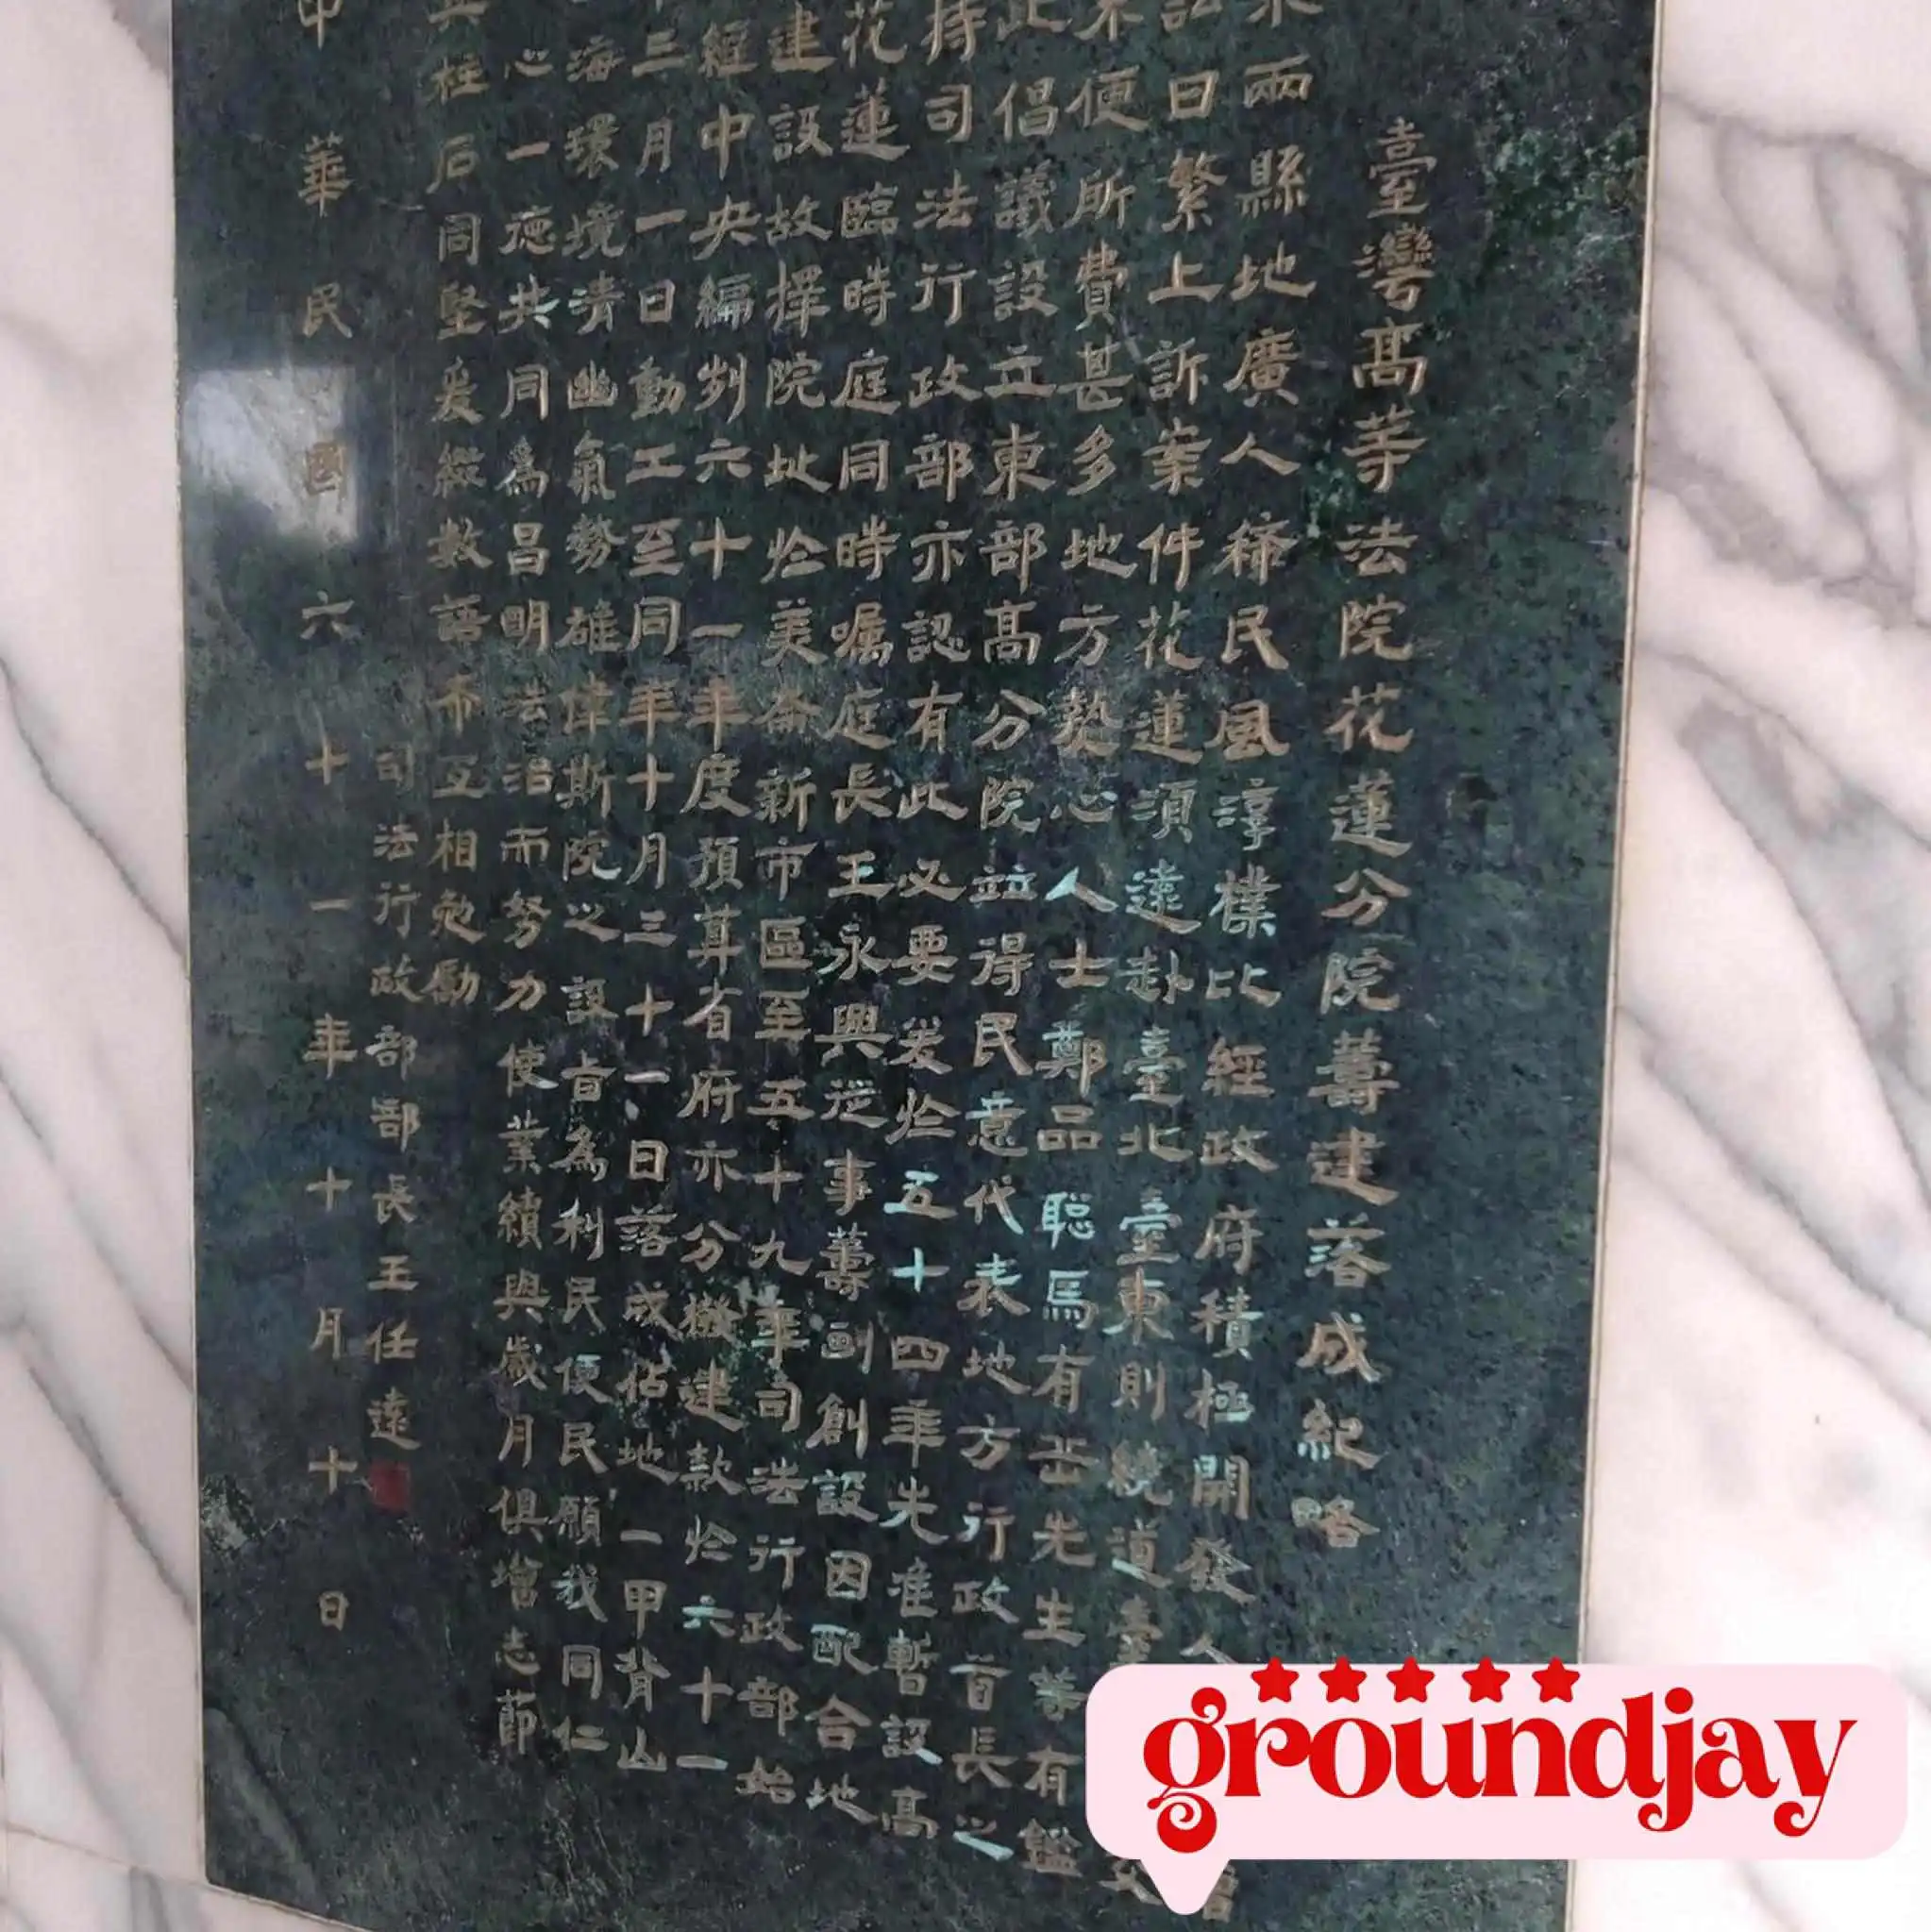 臺灣高等法院花蓮分院籌建落成紀略
兩縣地廣人稀民風淳樸比經政府積極開發人
訟日繁上訴案件花蓮須遠赴臺北臺東則繞道臺
不便所費甚多地方熱心人士鄭品聰馬有岳先生等有鑑
此倡議設立東部高分院並得民意代表地方行政首長之
持司法行政部亦認有此必要爰於五十四年先准暫設高
花蓮臨時庭同時囑庭長王永興從事籌劃創設因配合地
建設故擇院址於美崙新市區至五十九年司法行政部始
經中央編列六十一年度預算省府亦分撥建款於六十一
三月一日動工至同年十月三十一日落成佔地一甲背山
海環境清幽氣勢雄偉斯院之設旨為利民便民願我同仁
心一德共同為昌明法治而努力使業績與歲月俱增志節
柱石同堅爰綴數語布互相勉勵
司法行政部部長王任遠
中華民國六十一年十月十日
groundjay